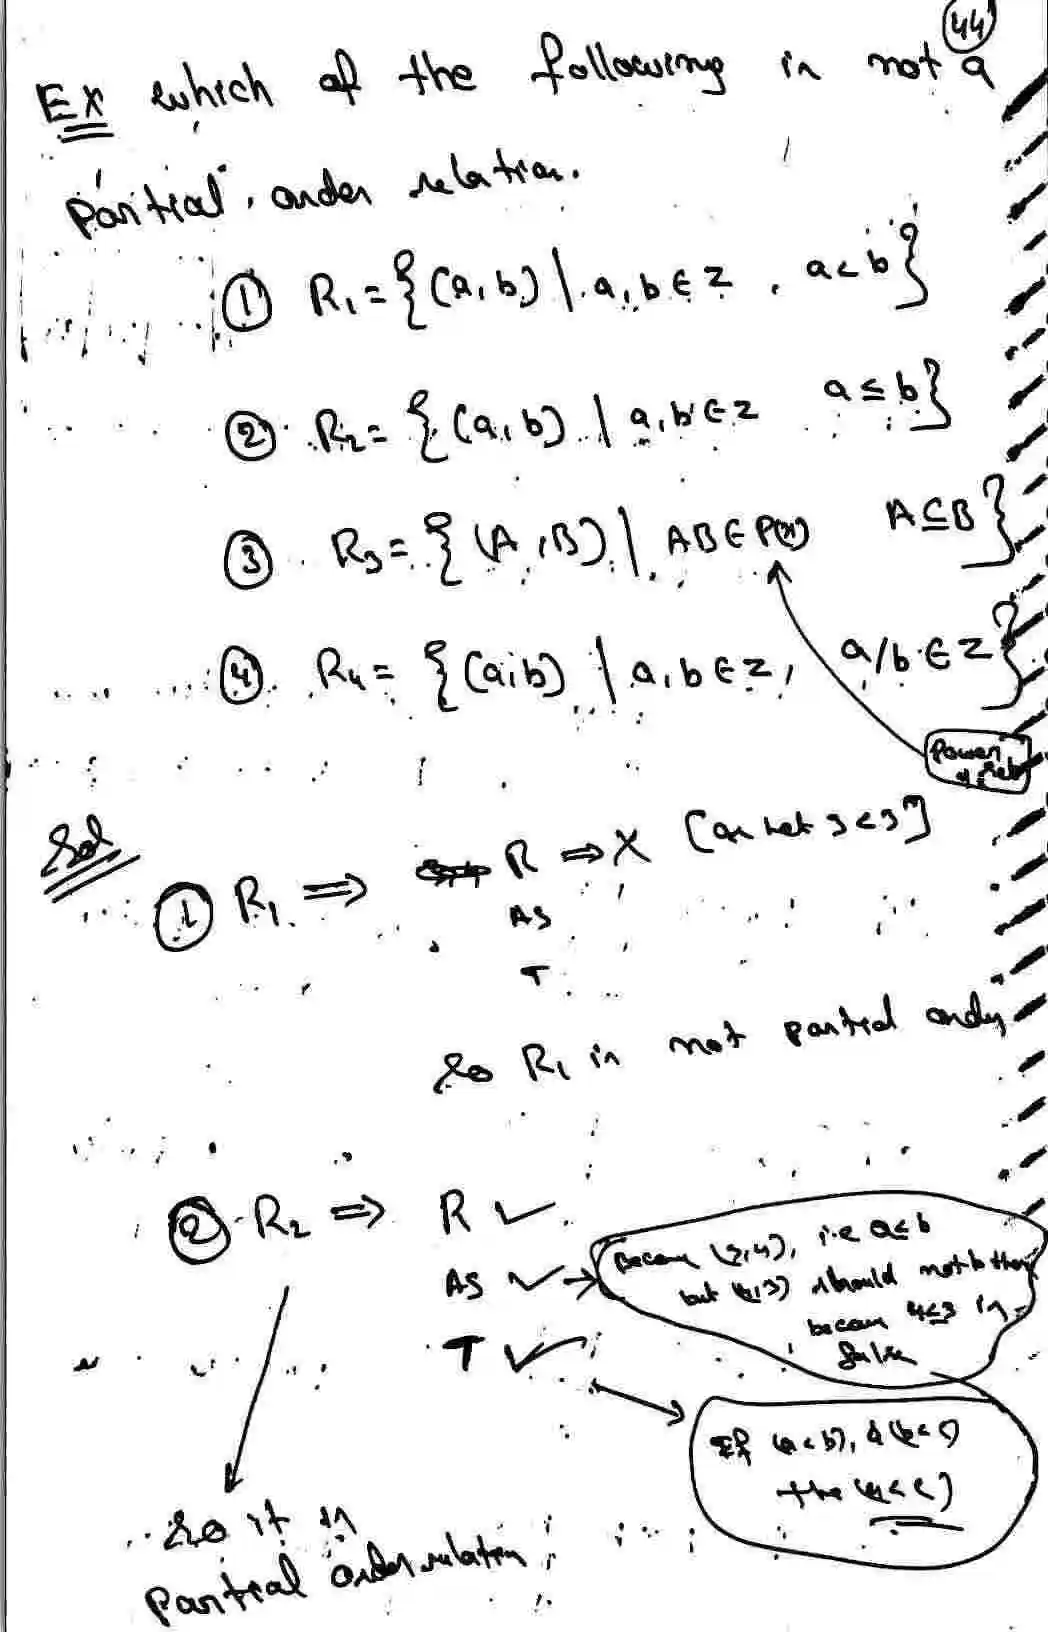 44
Ex which of the following is not a
partial order relation.
① R₁ = {(a,b) | a,b ∈ Z, a<b}
② R₂ = {(a,b) | a,b ∈ Z a ≤ b}
③ R₃ = {(A,B) | AB ∈ P(x) A ⊆ B}
④ R₄ = {(a,b) | a,b ∈ Z, a/b ∈ Z}
Power of set
Sol
① R₁ ⇒ R ⇒ X [as let 3<3]
AS
T
So R₁ is not partial order
② R₂ ⇒ R ✓
AS ✓ →
T ✓
because (3,4), i.e a≤b
but (4,3) should not be there
because 4≤3 is
false
If (a<b), & (b<c)
the (a<c)
So it is
partial order relation